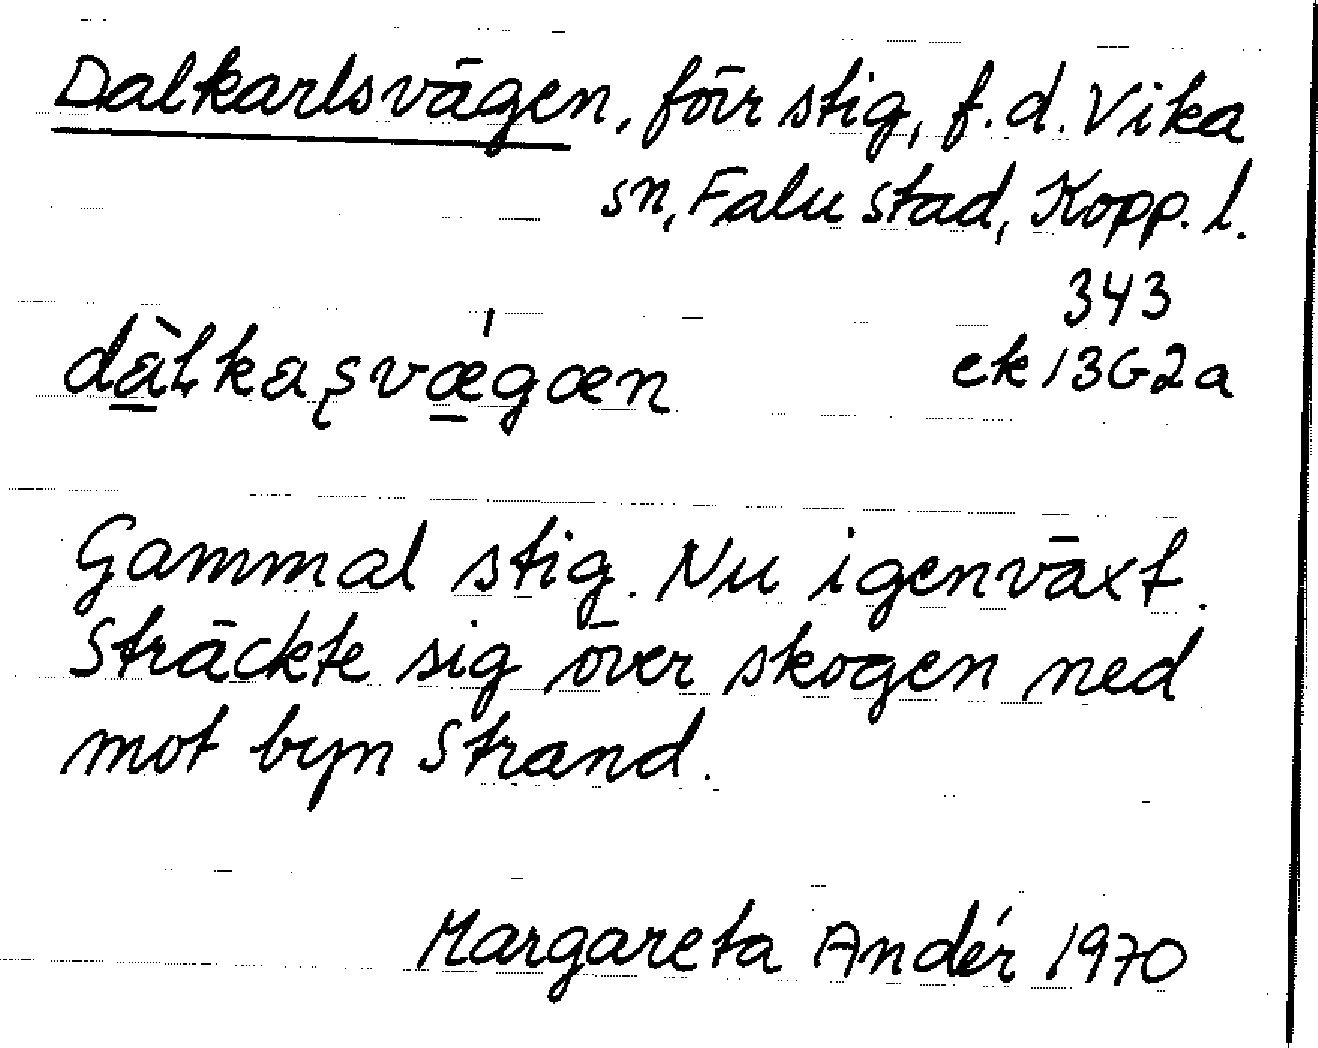 Dalkarlsvägen, förr stig, f.d. Vika
sn, Falu stad, Kopp. l.
343
ek 13G2a
dàlkaşvǽgæn
Gammal stig. Nu igenväxt.
Sträckte sig över skogen ned
mot byn Strand.
Margareta Andér 1970